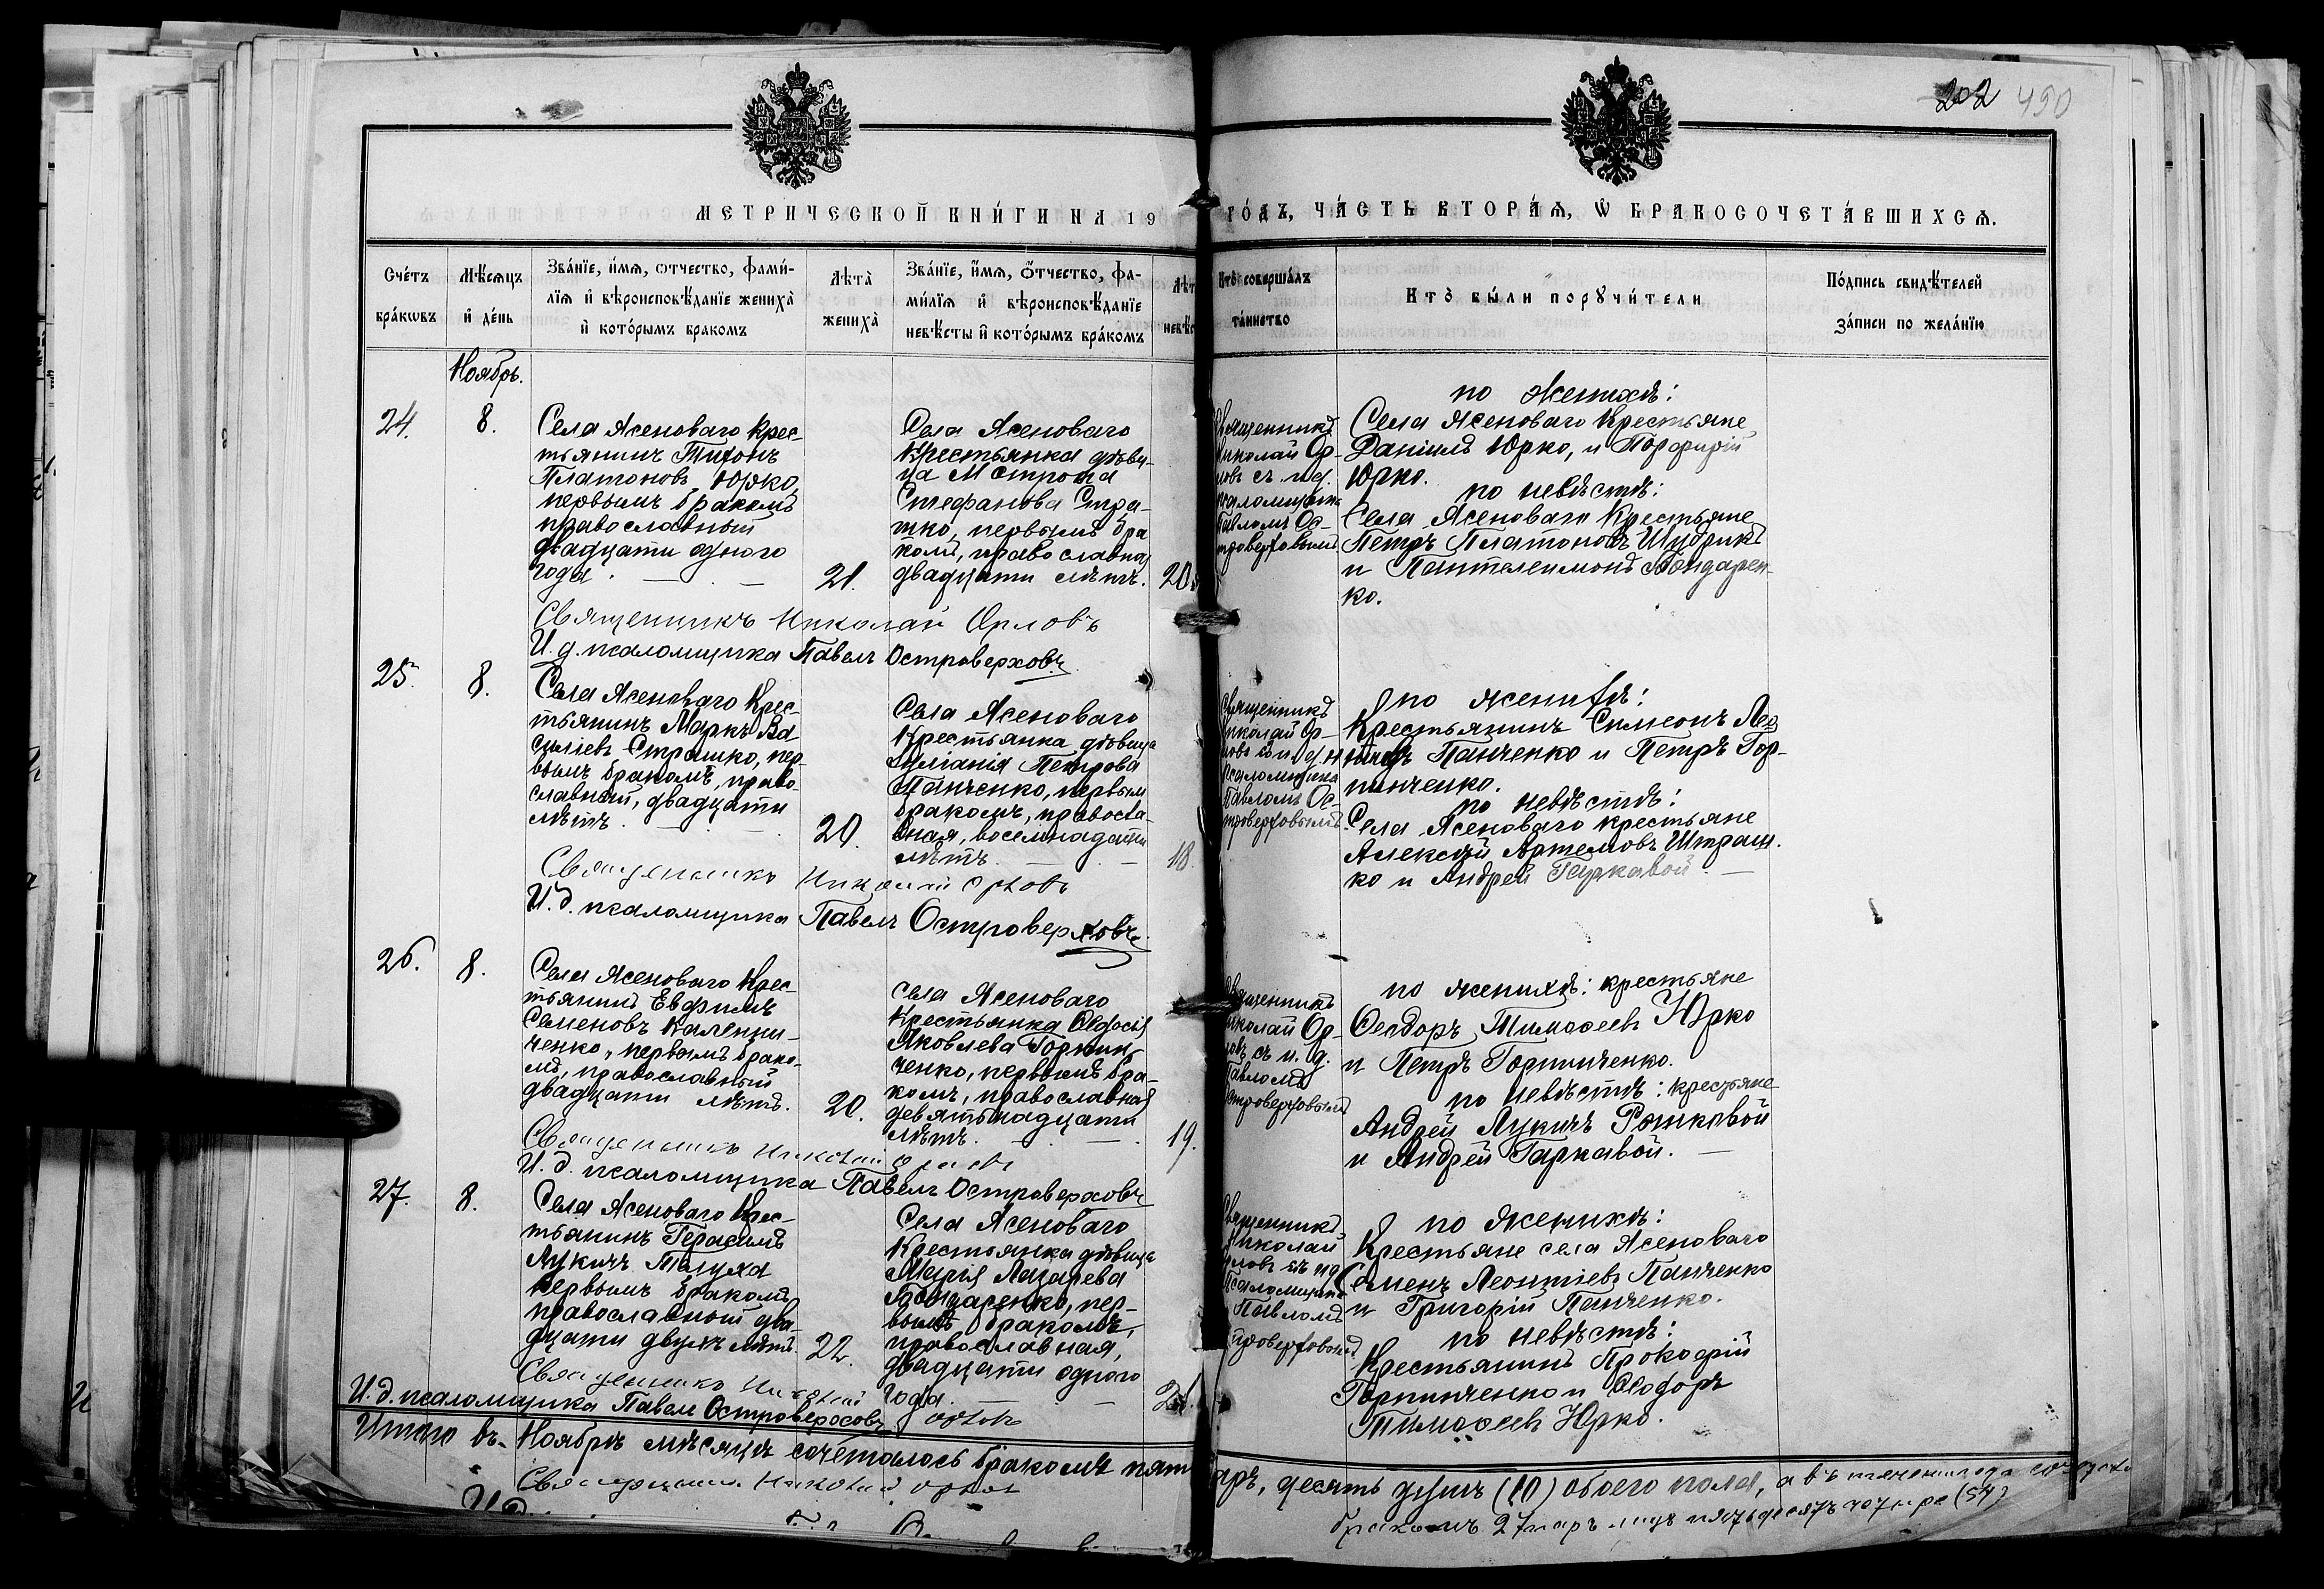 202 490
МЕТРИЧЕСКОЙ КНИГИ НА 19
ГОДЪ, ЧАСТЬ ВТОРАЯ, Ѡ БРАКОСОЧЕТАВШИХСЯ.
Счетъ браковъ
Мѣсяцъ и день
Званіе, имя, отчество, фами-
лія и вѣроисповѣданіе жениха
и которымъ бракомъ
Лѣта жениха
Званіе, имя, отчество, фа-
милія и вѣроисповѣданіе
невѣсты и которымъ бракомъ
Кто совершалъ
таинство
Кто были поручители
Подпись свидѣтелей
записи по желанію
Ноябрь.
24.
8.
Села Ясеноваго крес-
тьянинъ Тихонъ
Платоновъ Юрко,
первымъ бракомъ
православный
двадцати одного
года.
21.
Села Ясеноваго
крестьянка дѣви-
ца
Стефанова Стра-
шко, первымъ бра
комъ, православная
двадцати лѣтъ.
20.
Священникъ
Николай Ор-
ловъ съ и.д.
псаломщика
Павломъ Ос-
троверховымъ
по женихѣ:
Села Ясеноваго крестьяне
Даніилъ Юрко, и Порфирій
Юрко.
по невѣстѣ:
Села Ясеноваго крестьяне
Петръ Платоновъ
и Пантелеимонъ Бондарен-
ко.
Священникъ Николай Орловъ
И.д. псаломщика Павелъ Островерховъ
25.
8.
Села Ясеноваго крес-
тьянинъ Маркъ Ва
силіевъ Страшко, пер-
вымъ бракомъ, право-
славный, двадцати
лѣтъ.
20.
Села Ясеноваго
крестьянка дѣвица
Іуліанія Петрова
Панченко, первым
бракомъ, правосла-
вная, восемнадцати
лѣтъ.
18.
Священникъ
Николай Ор-
псаломщика
Павломъ Ос-
троверховымъ
по женихѣ:
Крестьянинъ Симеонъ Лео
Панченко и Петръ Гор-
пинченко.
по невѣстѣ:
Села Ясеноваго крестьяне
Алексѣй Артемовъ Штраш-
ко и Андрей Гаркавой.
Священникъ Николай Орловъ
И.д. псаломщика Павелъ Островерховъ
26.
8.
Села Ясеноваго крес-
тьянинъ Евфимъ
Семеновъ Калени-
ченко, первымъ брако-
мъ, православный
двадцати лѣтъ.
20.
Села Ясеноваго
крестьянка Ѳеодосія
Яковлева Горпин-
ченко, первымъ бра-
комъ, православная
девятьнадцати
лѣтъ.
19.
Священникъ
Николай Ор-
ловъ съ и.д.
Павломъ
Островерховымъ
по женихѣ: крестьяне
Ѳеодоръ Тимоѳеевъ Юрко
и Петръ Горпинченко.
по невѣстѣ: крестьяне
Андрей Лукичъ
и Андрей Гаркавой.
Священникъ Николай Орловъ
И.д. псаломщика Павелъ Островерховъ
27.
8.
Села Ясеноваго крес-
тьянинъ Герасимъ
Лукичъ
первымъ бракомъ
православный два-
дцати двухъ лѣтъ
22.
Села Ясеноваго
крестьянка дѣвица
Марія Лазарева
Бондаренко, пер-
вымъ бракомъ,
православная,
двадцати одного
года.
21.
Священникъ
Николай
Орловъ съ ид
псаломщика
Павломъ
Островерховымъ
по женихѣ:
Крестьяне села Ясеноваго
Семенъ Леонтіевъ Панченко
и Григорій Панченко.
по невѣстѣ:
Крестьянинъ Прокофій
Горпинченко и Ѳеодоръ
Тимоѳеевъ Юрко.
Священникъ Николай Орловъ
И.д. псаломщика Павелъ Островерховъ
Итого въ Ноябрѣ мѣсяцѣ сочеталось бракомъ пять
паръ, десять душъ (10) обоего пола, а въ теченіи года
бракомъ 27 паръ лицъ пятьдесятъ четыре (54)
Священникъ Николай Орловъ